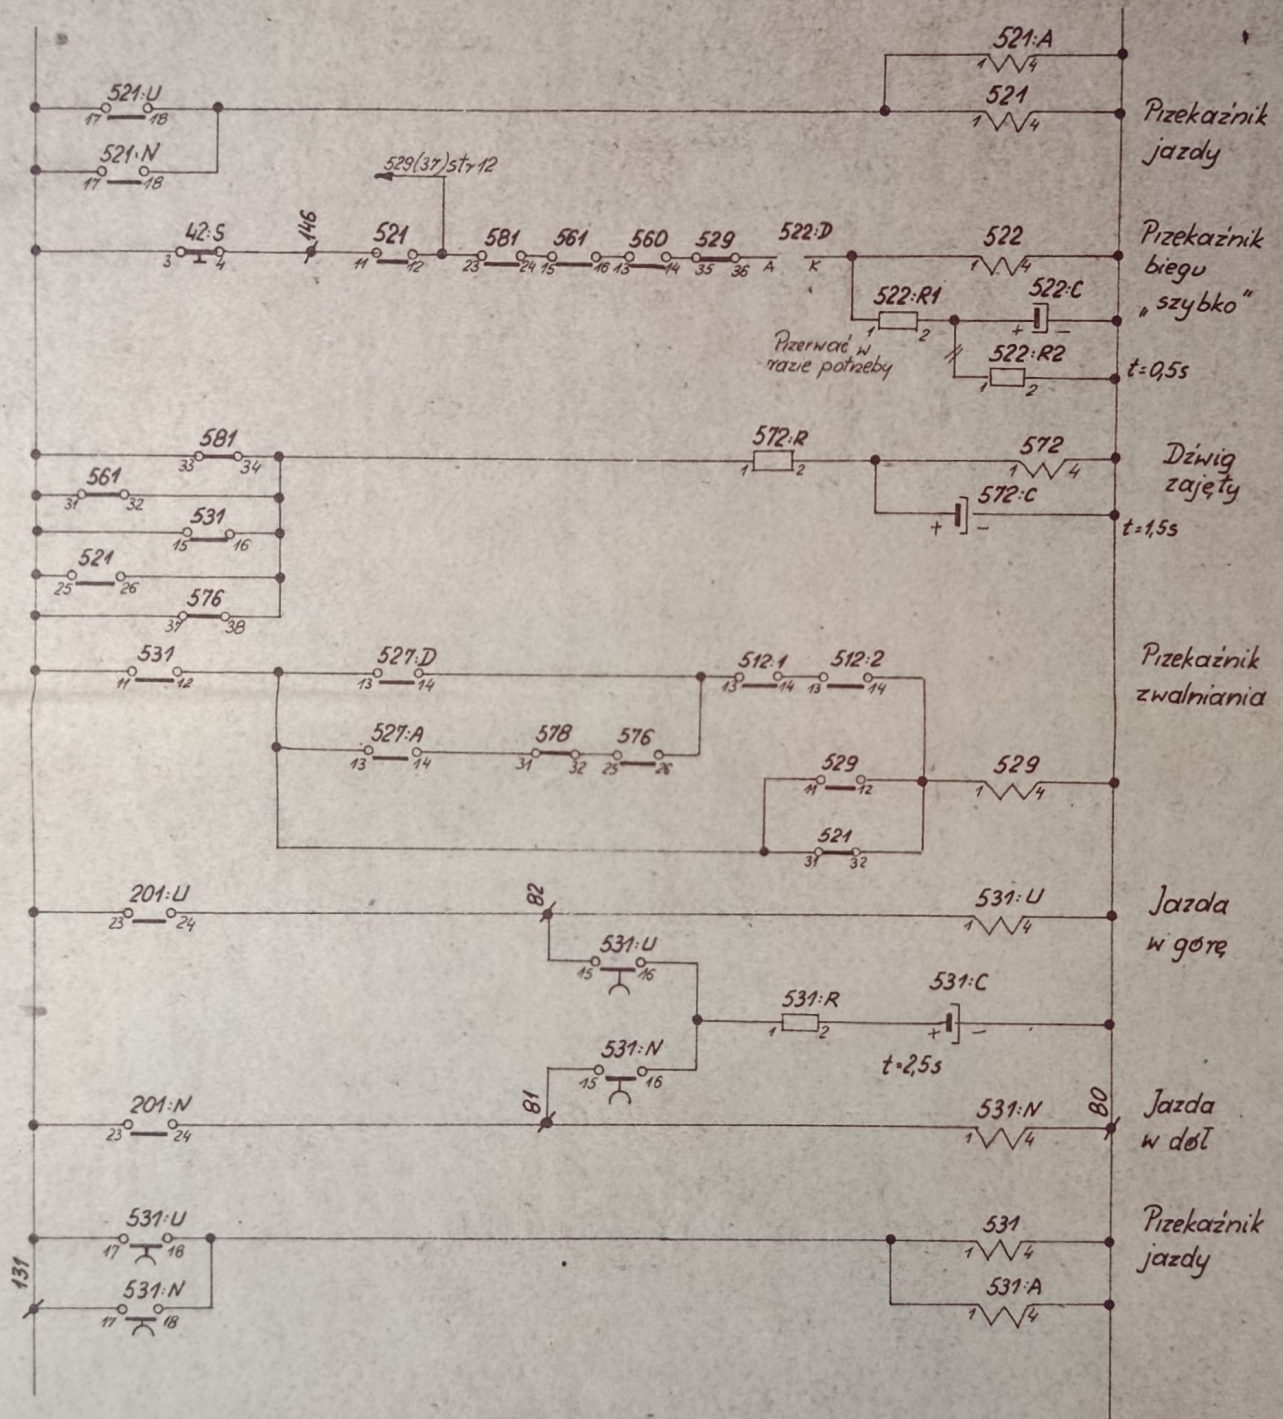 521:A
1 4
521:U
17 18
521
1 4
Przekaźnik
jazdy
521:N
17 18
529(37)str12
42:S
3 4
146
521
11 12
581
23 24
561
15 16
560
13 14
529
35 36
522:D
A K
522
1 4
Przekaźnik
biegu
„szybko"
522:R1
1 2
522:C
+ -
Przerwać w
razie potrzeby
522:R2
1 2
t=0,5s
581
33 34
572:R
1 2
572
1 4
Dźwig
zajęty
561
31 32
572:C
+ -
t=1,5s
531
15 16
521
25 26
576
37 38
531
11 12
527:D
13 14
512:1
13 14
512:2
13 14
Przekaźnik
zwalniania
527:A
13 14
578
31 32
576
25 26
529
11 12
529
1 4
521
31 32
201:U
23 24
82
531:U
1 4
Jazda
w górę
531:U
15 16
531:R
1 2
531:C
+ -
t=2,5s
531:N
15 16
201:N
23 24
81
531:N
1 4
80
Jazda
w dół
531:U
17 18
531
1 4
Przekaźnik
jazdy
131
531:N
17 18
531:A
1 4